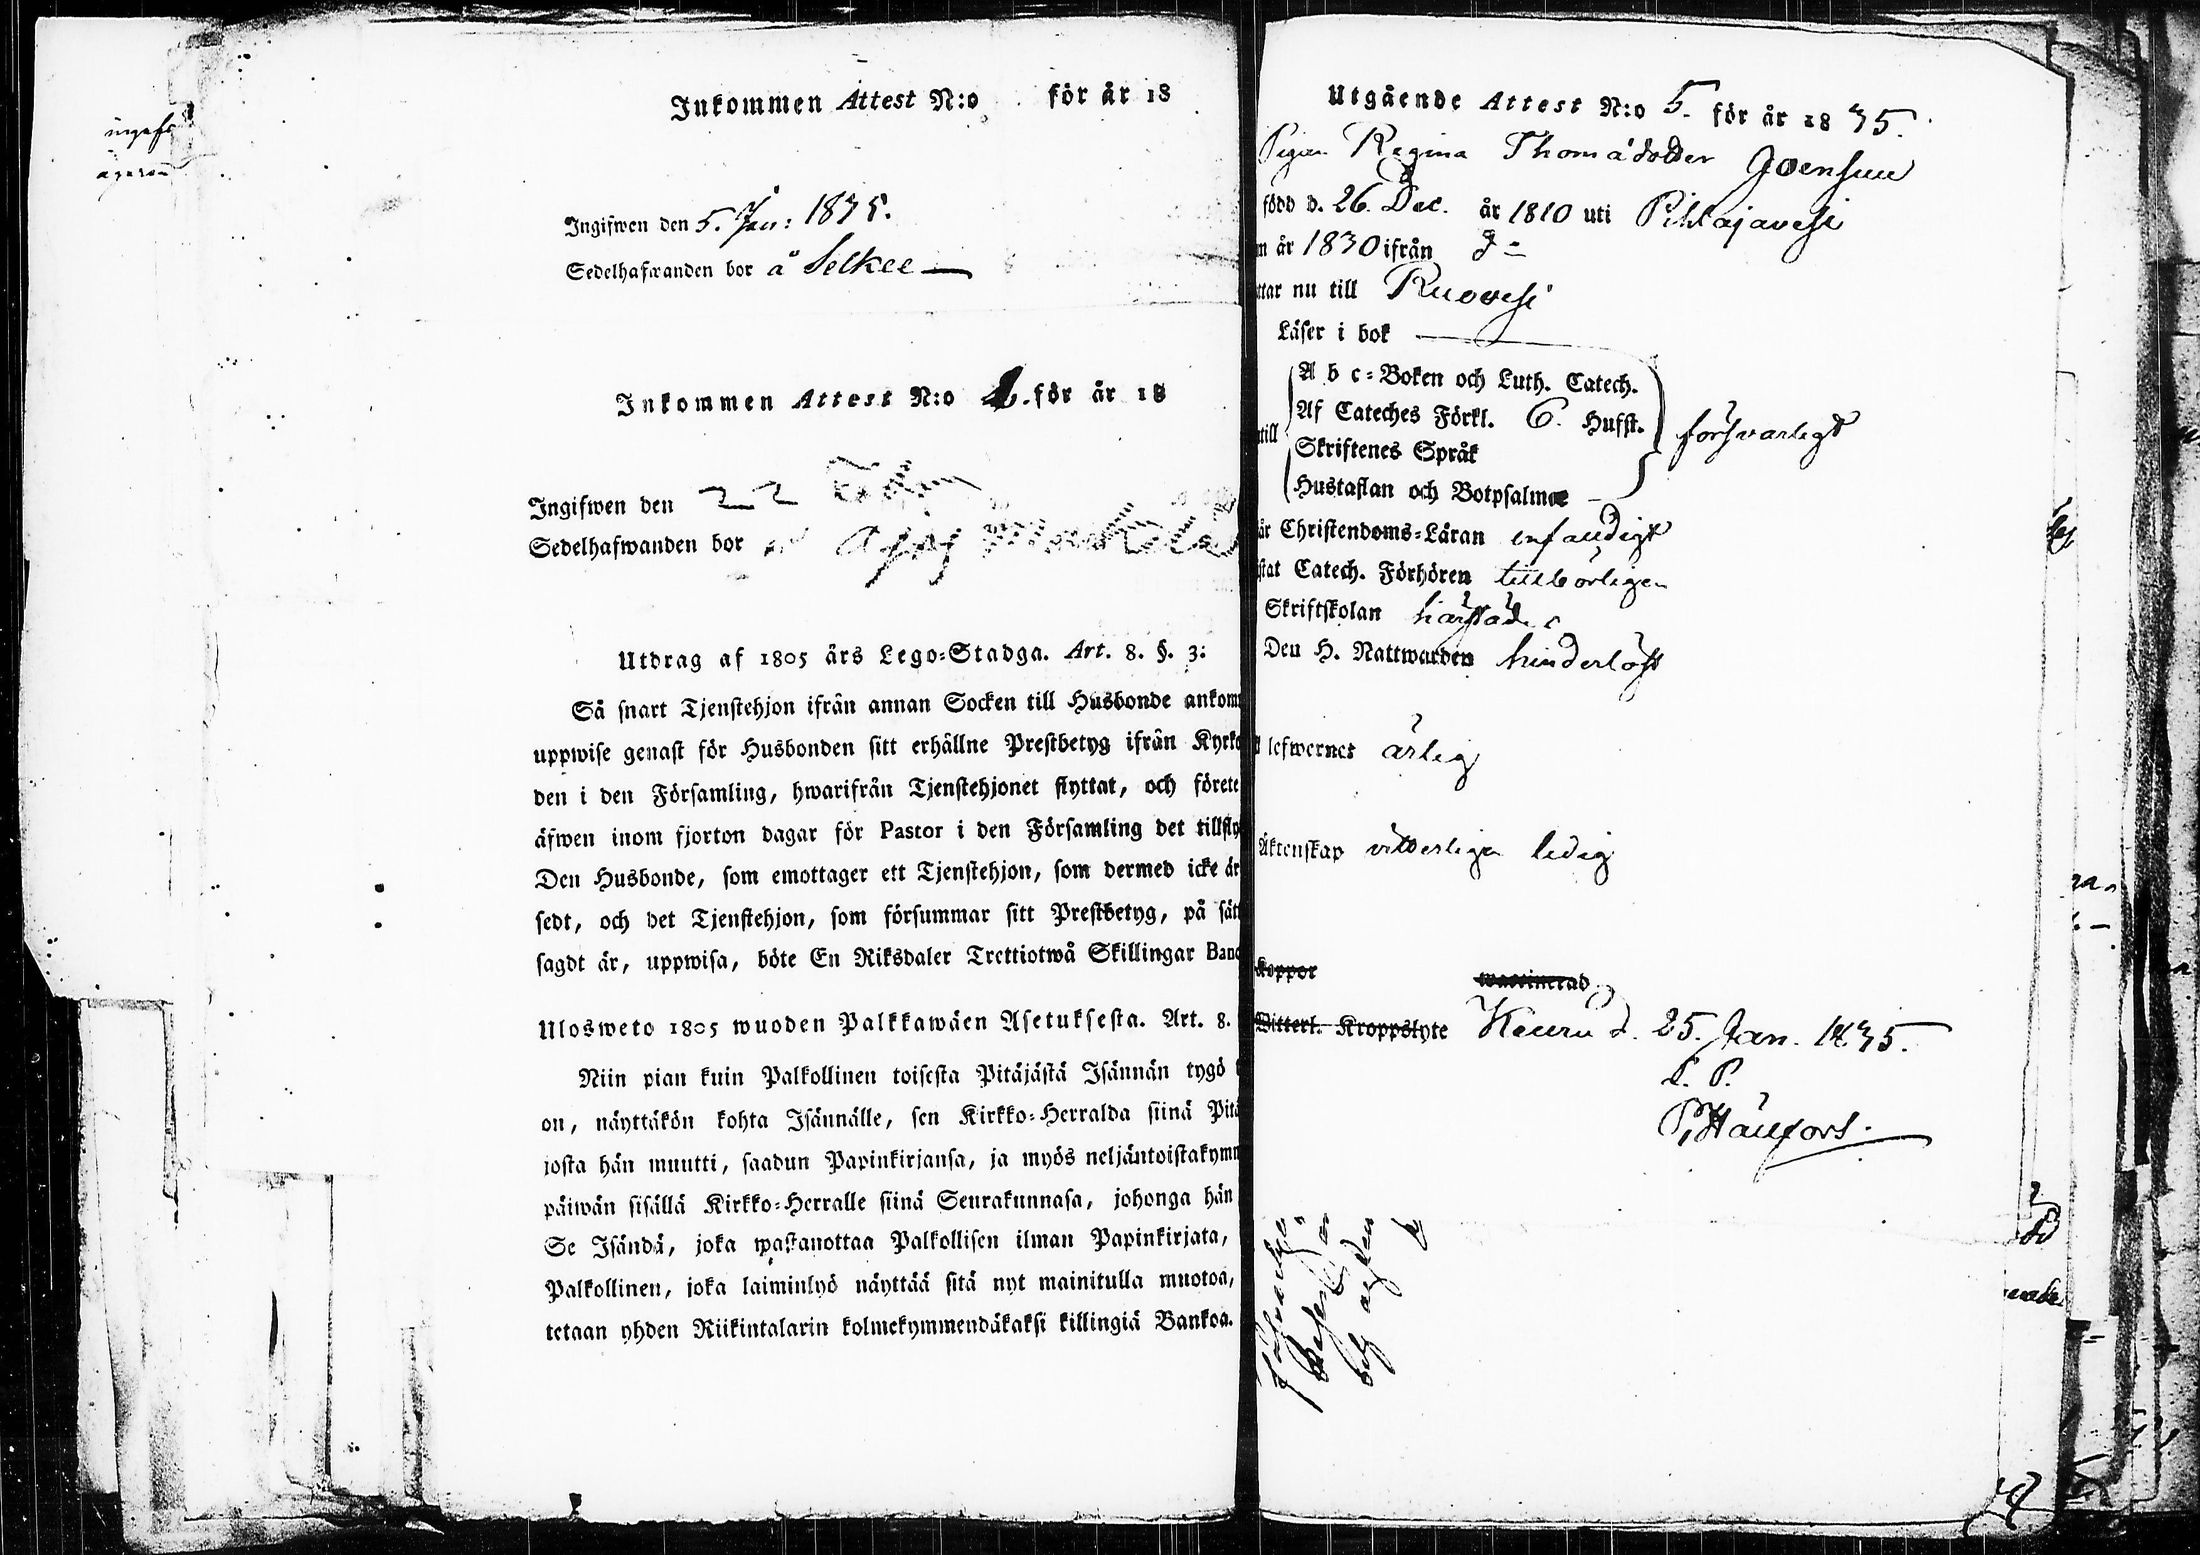 Inkommen Attest N:o för år 18
Ingifwen den 5. Jan: 1835.
Sedelhafwanden bor å Selkee
Inkommen Attest N:o för år 18
Ingifwen den 22
Sedelhafwanden bor
Utdrag af 1805 års Lego-Stadga. Art. 8. §. 3:
Så snart Tjenstehjon ifrån annan Socken till Husbonde ankom
uppwise genast för Husbonden sitt erhållne Prestbetyg ifrån Kyrko
den i den Församling, hwarifrån Tjenstehjonet flyttat, och förete
äfwen inom fjorton dagar för Pastor i den Församling det tillfly
Den Husbonde, som emottager ett Tjenstehjon, som dermed icke är
sedt, och det Tjenstehjon, som försummar sitt Prestbetyg, på sätt
sagdt är, uppwisa, böte En Riksdaler Trettiotwå Skillingar Banc
Ulosweto 1805 wuoden Palkkawäen Asetuksesta. Art. 8.
Niin pian kuin Palkollinen toisesta Pitäjästä Isännän tygö
on, näyttäkön kohta Isännälle, sen Kirkko-Herralda siinä Pitä
josta hän muutti, saadun Papinkirjansa, ja myös neljäntoistakymm
päiwän sisällä Kirkko-Herralle siinä Seurakunnasa, johonga hän
Se Isändä, joka wastanottaa Palkollisen ilman Papinkirjata,
Palkollinen, joka laiminlyö näyttää sitä nyt mainitulla muotoa,
tetaan yhden Riikintalarin kolmekymmendäkaksi killingiä Bankoa.
Utgående Attest N:o 5. för år 1835.
Pigan Regina Thomädotter Joensuu
född d. 26. Dec. år 1810 uti Pihlajavesi
n år 1830 ifrån d=
ttar nu till Ruovesi
Läser i bok
A b c-Boken och Luth. Catech.
Af Cateches Förkl. 6. Hufst.
till försvarligt
Skriftenes Språk
Hustaflan och Botpsalmer
år Christendoms-Läran enfaldigt
stat Catech. Förhören tillbörligen
Skriftskolan härstädes
Den H. Nattwarden hinderlöst
lefwernes ärlig
Äktenskap vitterligen ledig
Koppor waccinerad
Witterl. Kroppslyte Keuru d. 25. Jan. 1835.